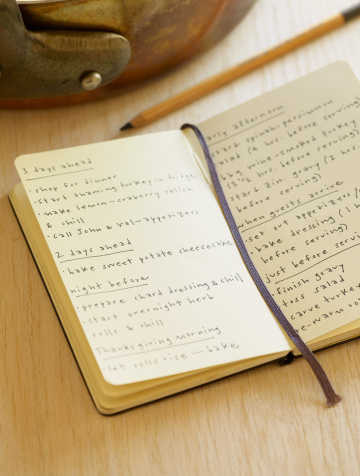 3 days ahead
· shop for dinner
· start thawing turkey in fridge
· make lemon-cranberry relish
& chill
· call John & Val - appetizers
2 days ahead
· bake sweet potato cheesecake
night before
· prepare chard dressing & chill
· start overnight herb
rolls & chill
Thanksgiving morning
· let rolls rise — bake
early afternoon
start spinach-persimmon
salad (4 hrs. before serving)
start zin. gravy (2 hrs.
before serving)
when guests arrive
· set out appetizers
· bake dressing (1
before serving)
just before serving
· finish gravy
toss salad
carve turkey